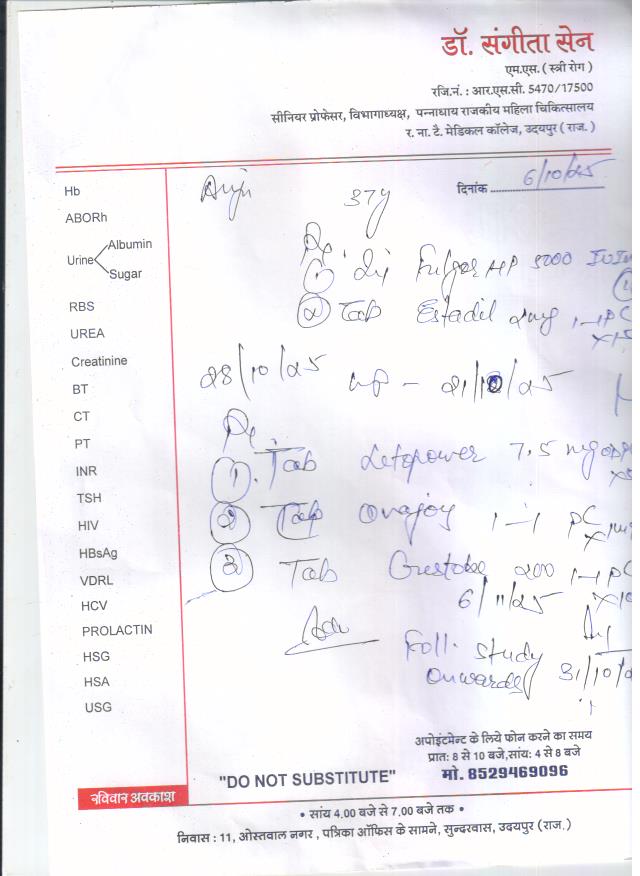 डॉ. संगीता सेन
एम.एस. ( स्त्री रोग )
रजि.नं. : आर.एस.सी. 5470/17500
सीनियर प्रोफेसर, विभागाध्यक्ष, पन्नाधाय राजकीय महिला चिकित्सालय
र. ना. टै. मेडिकल कॉलेज, उदयपुर ( राज. )
दिनांक 6/10/25
37y
Hb
ABORh
Urine Albumin
Sugar
RBS
UREA
Creatinine
BT
CT
PT
INR
TSH
HIV
HBsAg
VDRL
HCV
PROLACTIN
HSG
HSA
USG
Rx
① HP 5000
② Tab Estadil 2mg 1-1 PC
28/10/25 - 21/10/25
Rx
1. Tab Letopower 7.5 mg
② Tab Ovajoy 1-1 PC
③ Tab 200 1-1 PC
6/11/25
Adv
Foll. study
onwards 31/10/
अपोइंटमेन्ट के लिये फोन करने का समय
प्रात: 8 से 10 बजे,सांय: 4 से 8 बजे
मो. 8529469096
"DO NOT SUBSTITUTE"
रविवार अवकाश
• सांय 4.00 बजे से 7.00 बजे तक •
निवास : 11, ओस्तवाल नगर , पत्रिका ऑफिस के सामने, सुन्दरवास, उदयपुर (राज.)